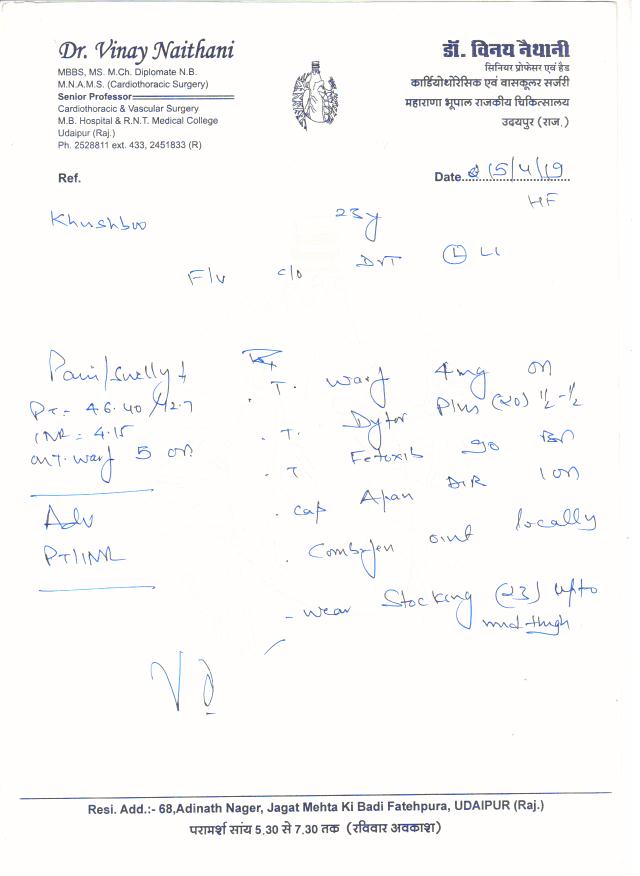 Dr. Vinay Naithani
MBBS, MS. M.Ch. Diplomate N.B.
M.N.A.M.S. (Cardiothoracic Surgery)
Senior Professor
Cardiothoracic & Vascular Surgery
M.B. Hospital & R.N.T. Medical College
Udaipur (Raj.)
Ph. 2528811 ext. 433, 2451833 (R)
डॉ. विनय नैथानी
सिनियर प्रोफेसर एवं हैड
कार्डियोथोरेसिक एवं वासकूलर सर्जरी
महाराणा भूपाल राजकीय चिकित्सालय
उदयपुर (राज.)
Ref.
Date 15/4/19
HF
Khushboo 23y
F/v c/o DVT Ⓛ LL
Pain/Swelly +
PT = 46.40/12.7
INR = 4.15
on T. warf 5 on
Adv
PT/INR
Rx
. T. warf 4mg on
. T. Dytor Plus (20) 1/2-1/2
. T 90
. cap DSR 1 on
. oint locally
- wear Stocking (23) upto
mid-thigh
Resi. Add.:- 68,Adinath Nager, Jagat Mehta Ki Badi Fatehpura, UDAIPUR (Raj.)
परामर्श सांय 5.30 से 7.30 तक (रविवार अवकाश)